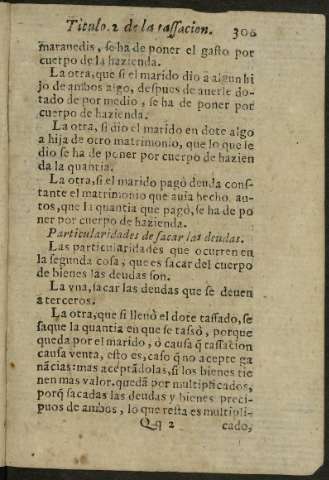 Titulo. 2 de la tassacion. 306
marauedis, se ha de poner el gasto por
cuerpo de la hazienda.
La otra, que si el marido dio a algun hi
jo de ambos algo, despues de auerle do-
tado de por medio, se ha de poner por
cuerpo de hazienda.
La otra, si dio el marido en dote algo
a hija de otro matrimonio, que lo que le
dio se ha de poner por cuerpo de hazien
da la quantia.
La otra, si el marido pagò deuda cons-
tante el matrimonio que auia hecho an-
tes, que la quantia que pagò, se ha de po
ner por cuerpo de hazienda.
Particularidades de sacar las deudas.
Las particularidades que ocurren en
la segunda cosa, que es sacar del cuerpo
de bienes las deudas son.
La vna, sacar las deudas que se deuen
à terceros.
La otra, que si lleuò el dote tassado, se
saque la quantia en que se tassò, porque
queda por el marido, ò causa q̃ tassacion
causa venta, esto es, caso q̃ no acepte ga
nãcias: mas aceptãdolas, si los bienes tie
nen mas valor. quedã por multiplicados,
porq̃ sacadas las deudas y bienes preci-
puos de ambos, lo que resta es multipli-
Qq 2 cado,